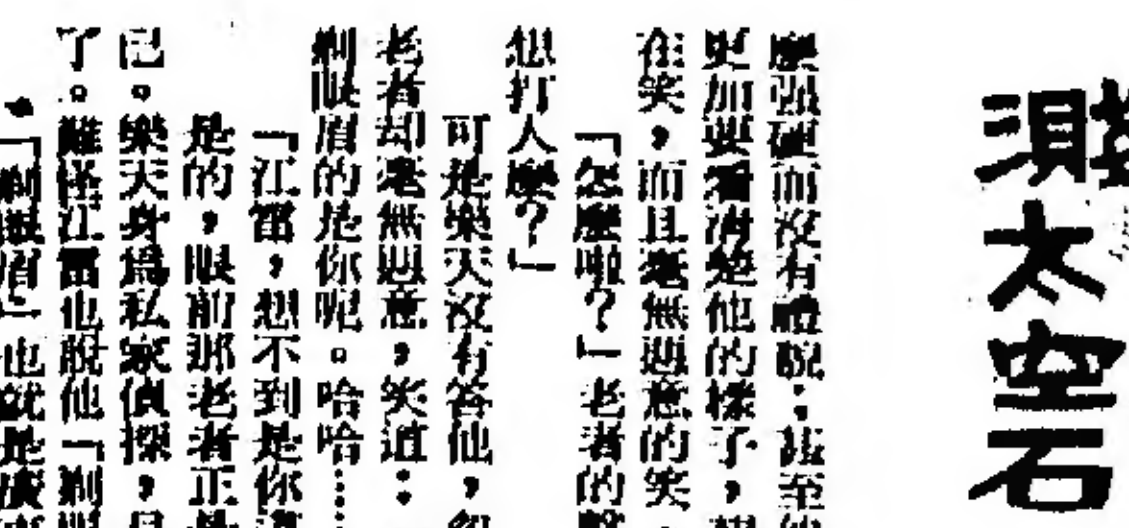 須太空石
麼强硬而沒有禮貌;甚至他
更加要看清楚他的樣子,想
在笑,而且毫無惡意的笑,
「怎麼啦?」老者的聲
想打人麼?」
可是樂天沒有答他,忽
老者却毫無惡意,笑道:
剃眼眉的是你呢。哈哈……
「江富,想不到是你這
是的,眼前那老者正是
己。樂天身爲私家偵探,是
了。難怪江富也說他「剃眼
「剃眼眉」也就是廣東